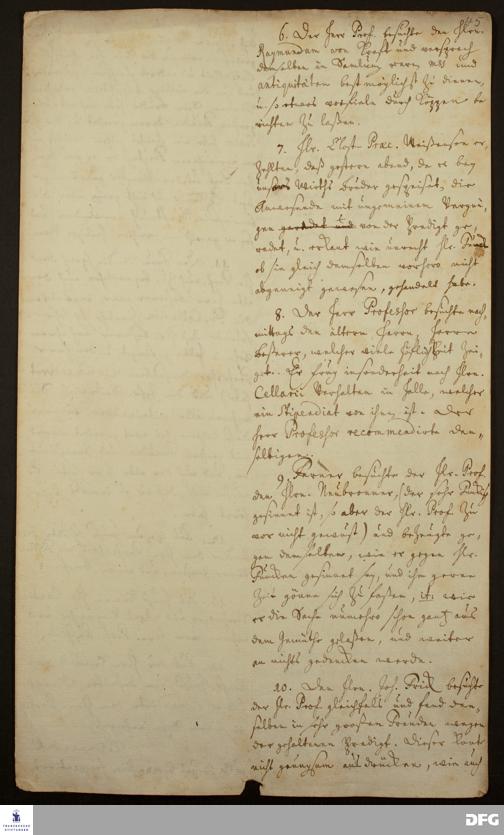 45
6. Der Herr Prof. besuchte den Hrn.
Raymundum von Krafft und versprach
demselben in Samlung rarer und
antiquitäten best möglichst zu dienen,
u. so etwas vorfiele durch be
richten zu laßen.
7. Hr. Past. Praec. Weißensee er,
zehlte, daß gestern abend, da er bey
unsers Wirths bruder gespeiset, die
Anwesende mit ungemeinem Vergnü,
gen geredet und von der Predigt ge,
redet, u. erkant wie unrecht Hr.
ob sie gleich demselben vorhero nicht
abgeneigt gewesen, gehandelt habe.
8. Der Herr Professor besuchte nach,
mittags den ältern Herrn, Herrn
Besserer, welcher viele Höflichkeit zei,
gte. Er frug insonderheit nach Hrn.
Cellarii Verhalten in Halle, welcher
ein Stipendiat von ihm ist. Der
Herr Professor recommendirte den,
selbigen.
9. Ferner besuchte der Hr. Prof.
den Hrn. Neubronner, (der sehr
gesinnet ist, so aber der Hr. Prof. zu
vor nicht gewust) und bezeugte ge,
gen demselben, wie er gegen Hr.
gesinnet sey, und ihm gerne
Zeit gönne sich zu faßen, it: wie
er die Sache nunmehro schon gantz aus
dem Gemüthe gelaßen, und weiter
an nichts gedencken werde.
10. Den Hrn. Joh. Frick besuchte
der Hr. Prof. gleichfals und fand den,
selben in sehr großen Freuden wegen
der gehaltenen Predigt. Dieser konte
nicht genugsam ausdrücken, wie auch
FRANCKESCHE
STIFTUNGEN
DFG